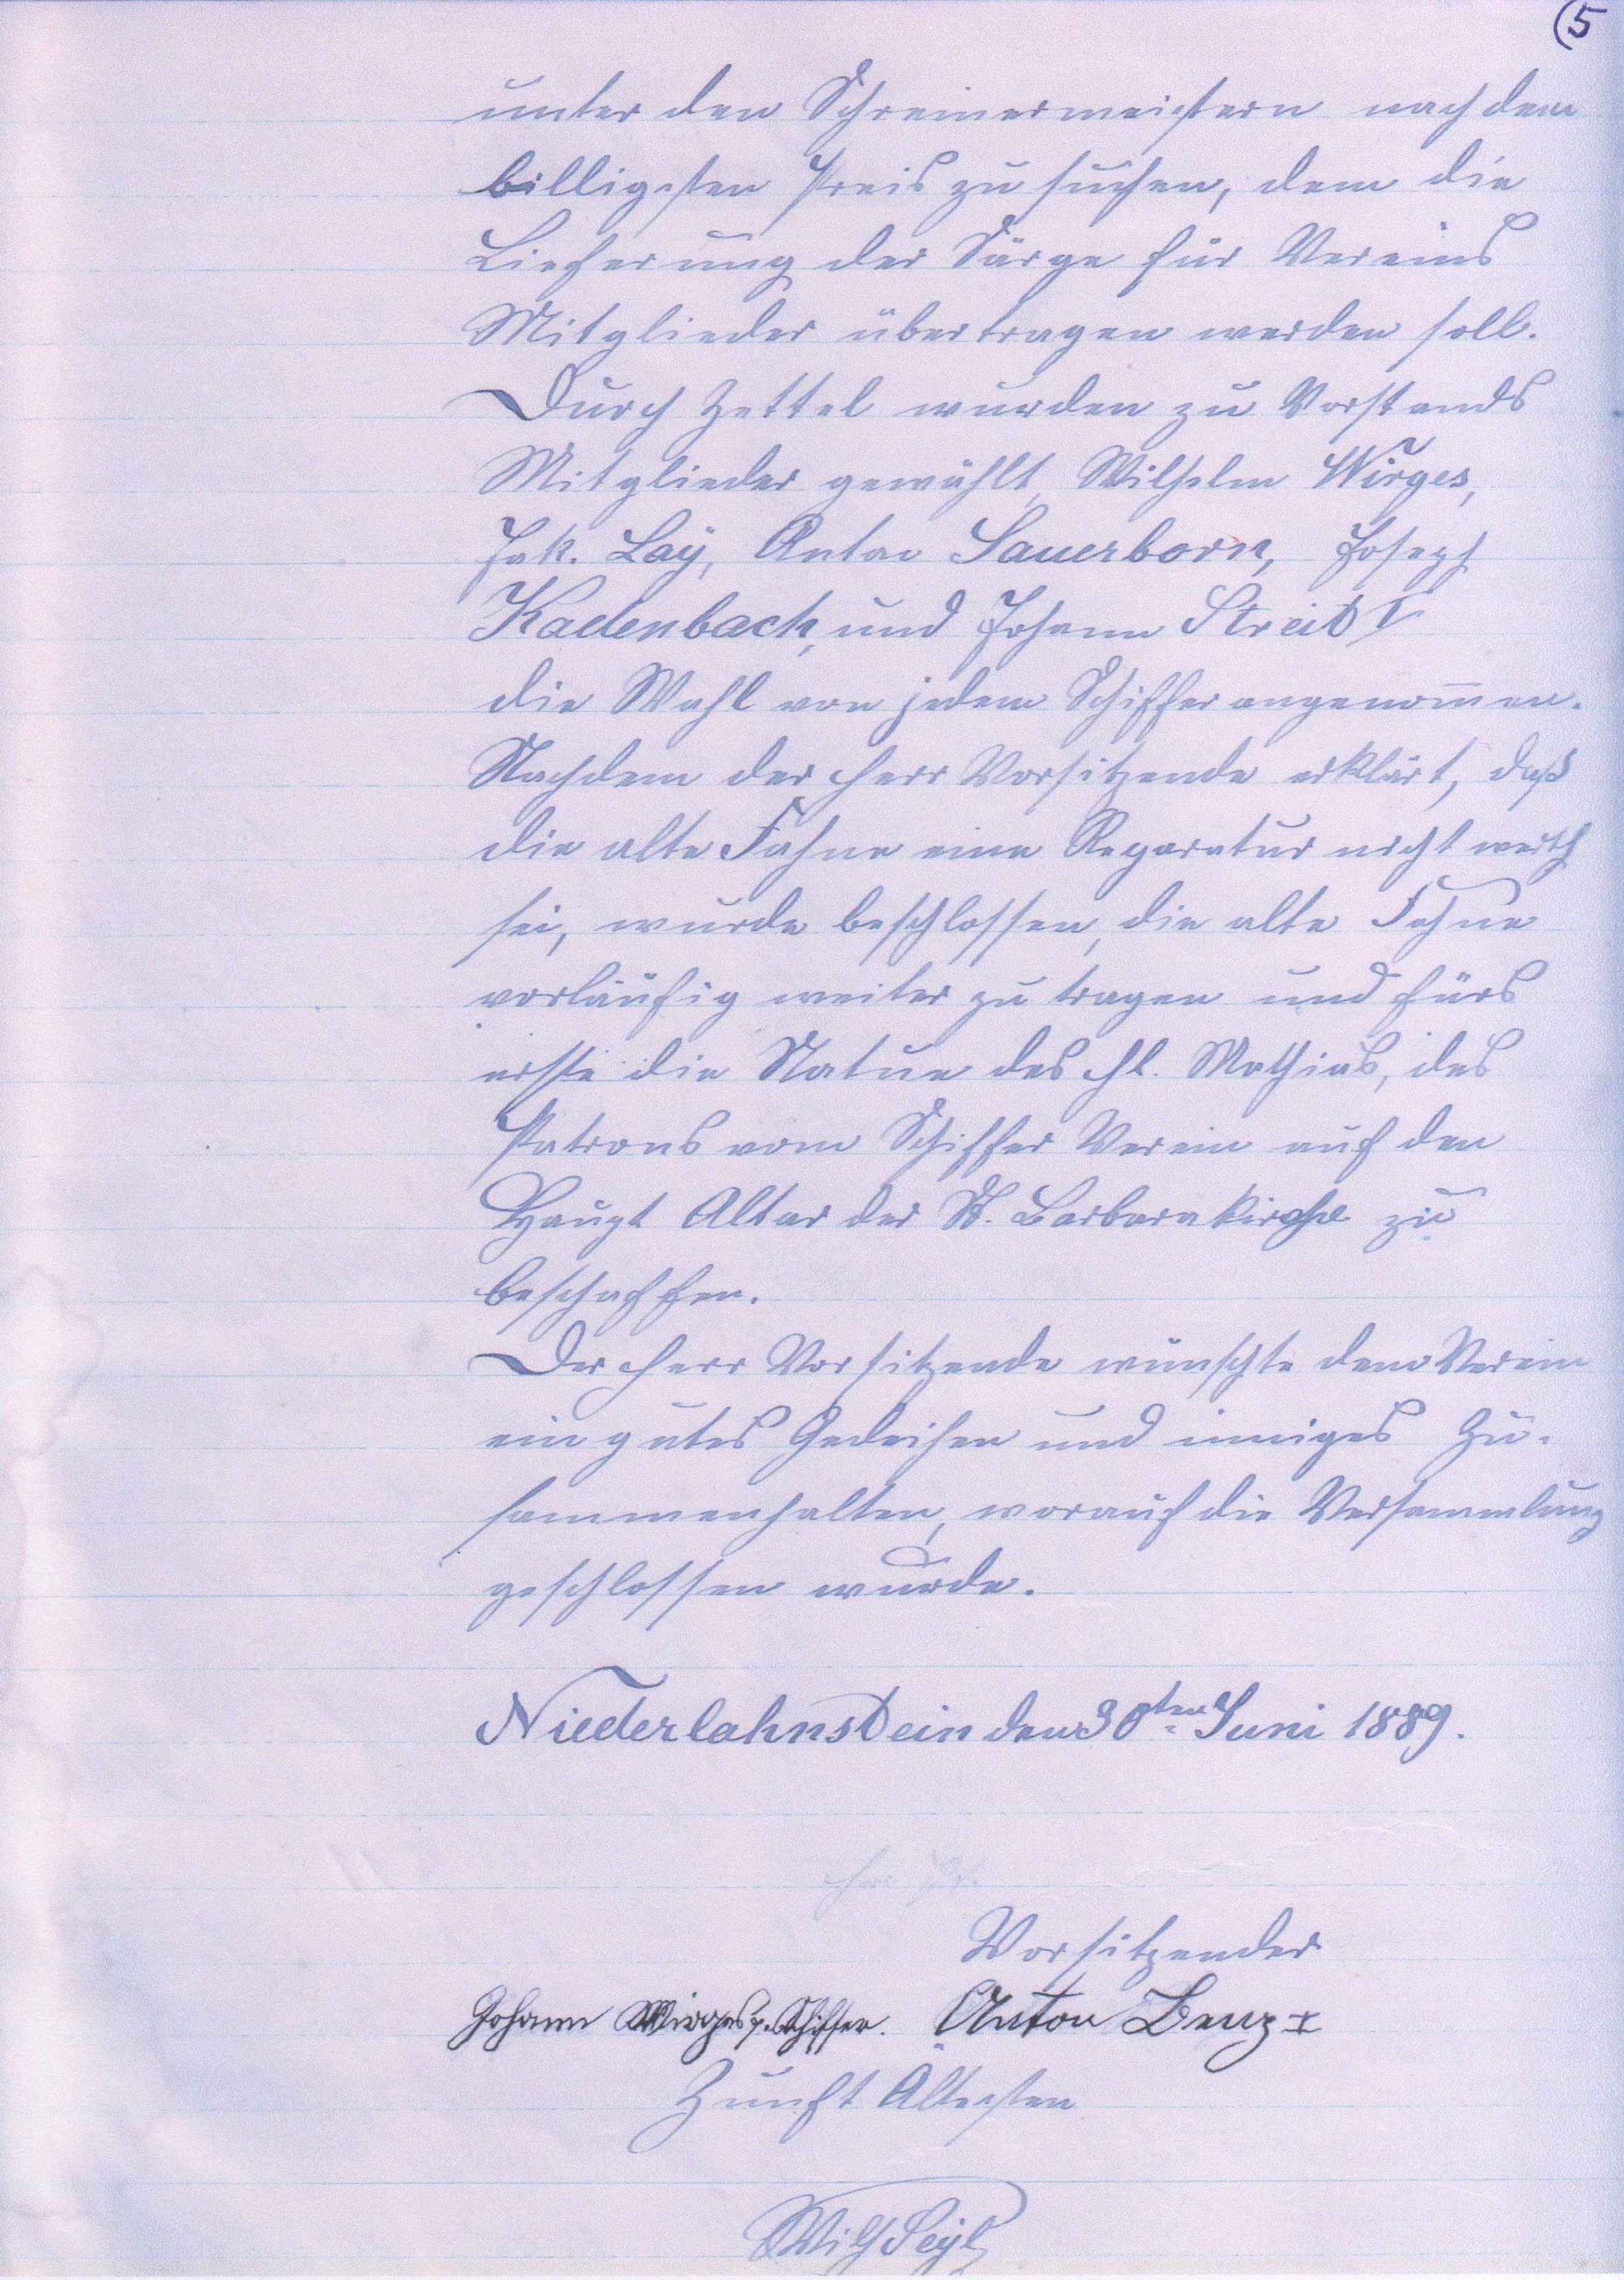 (5
unter den Schreinermeistern nach dem
billigsten Preis zu suchen, dem die
Lieferung der Särge für Vereins
Mitglieder übertragen werden soll.
Durch Zettel wurden zu Vorstands
Mitglieder gewählt, Wilhelm Wirges,
Jak. Laÿ, Anton Sauerborn, Joseph
Kadenbach, und Johann Streit I
die Wahl von jedem Schiffer angenom̅en.
Nachdem der Herr Vorsitzende erklärt, daß
die alte Fahne eine Reparatur nicht werth
sei, wurde beschlossen, die alte Fahne
vorläufig weiter zu tragen und fürs
erste die Statue des hl. Mathias, des
Patrons vom Schiffer Verein auf den
Haupt Altar der St. Barbarakirche zu
beschaffen.
Der Herr Vorsitzende wünschte dem Verein
ein gutes Gedeihen und inniges Zu-
sammenhalten, worauf die Versammlung
geschlossen wurde.
Niederlahnstein den 30ten Juni 1889.
Vorsitzender
Johann Wirges Schiffer. Anton Benz I
Zunft Ältesten
Wilh